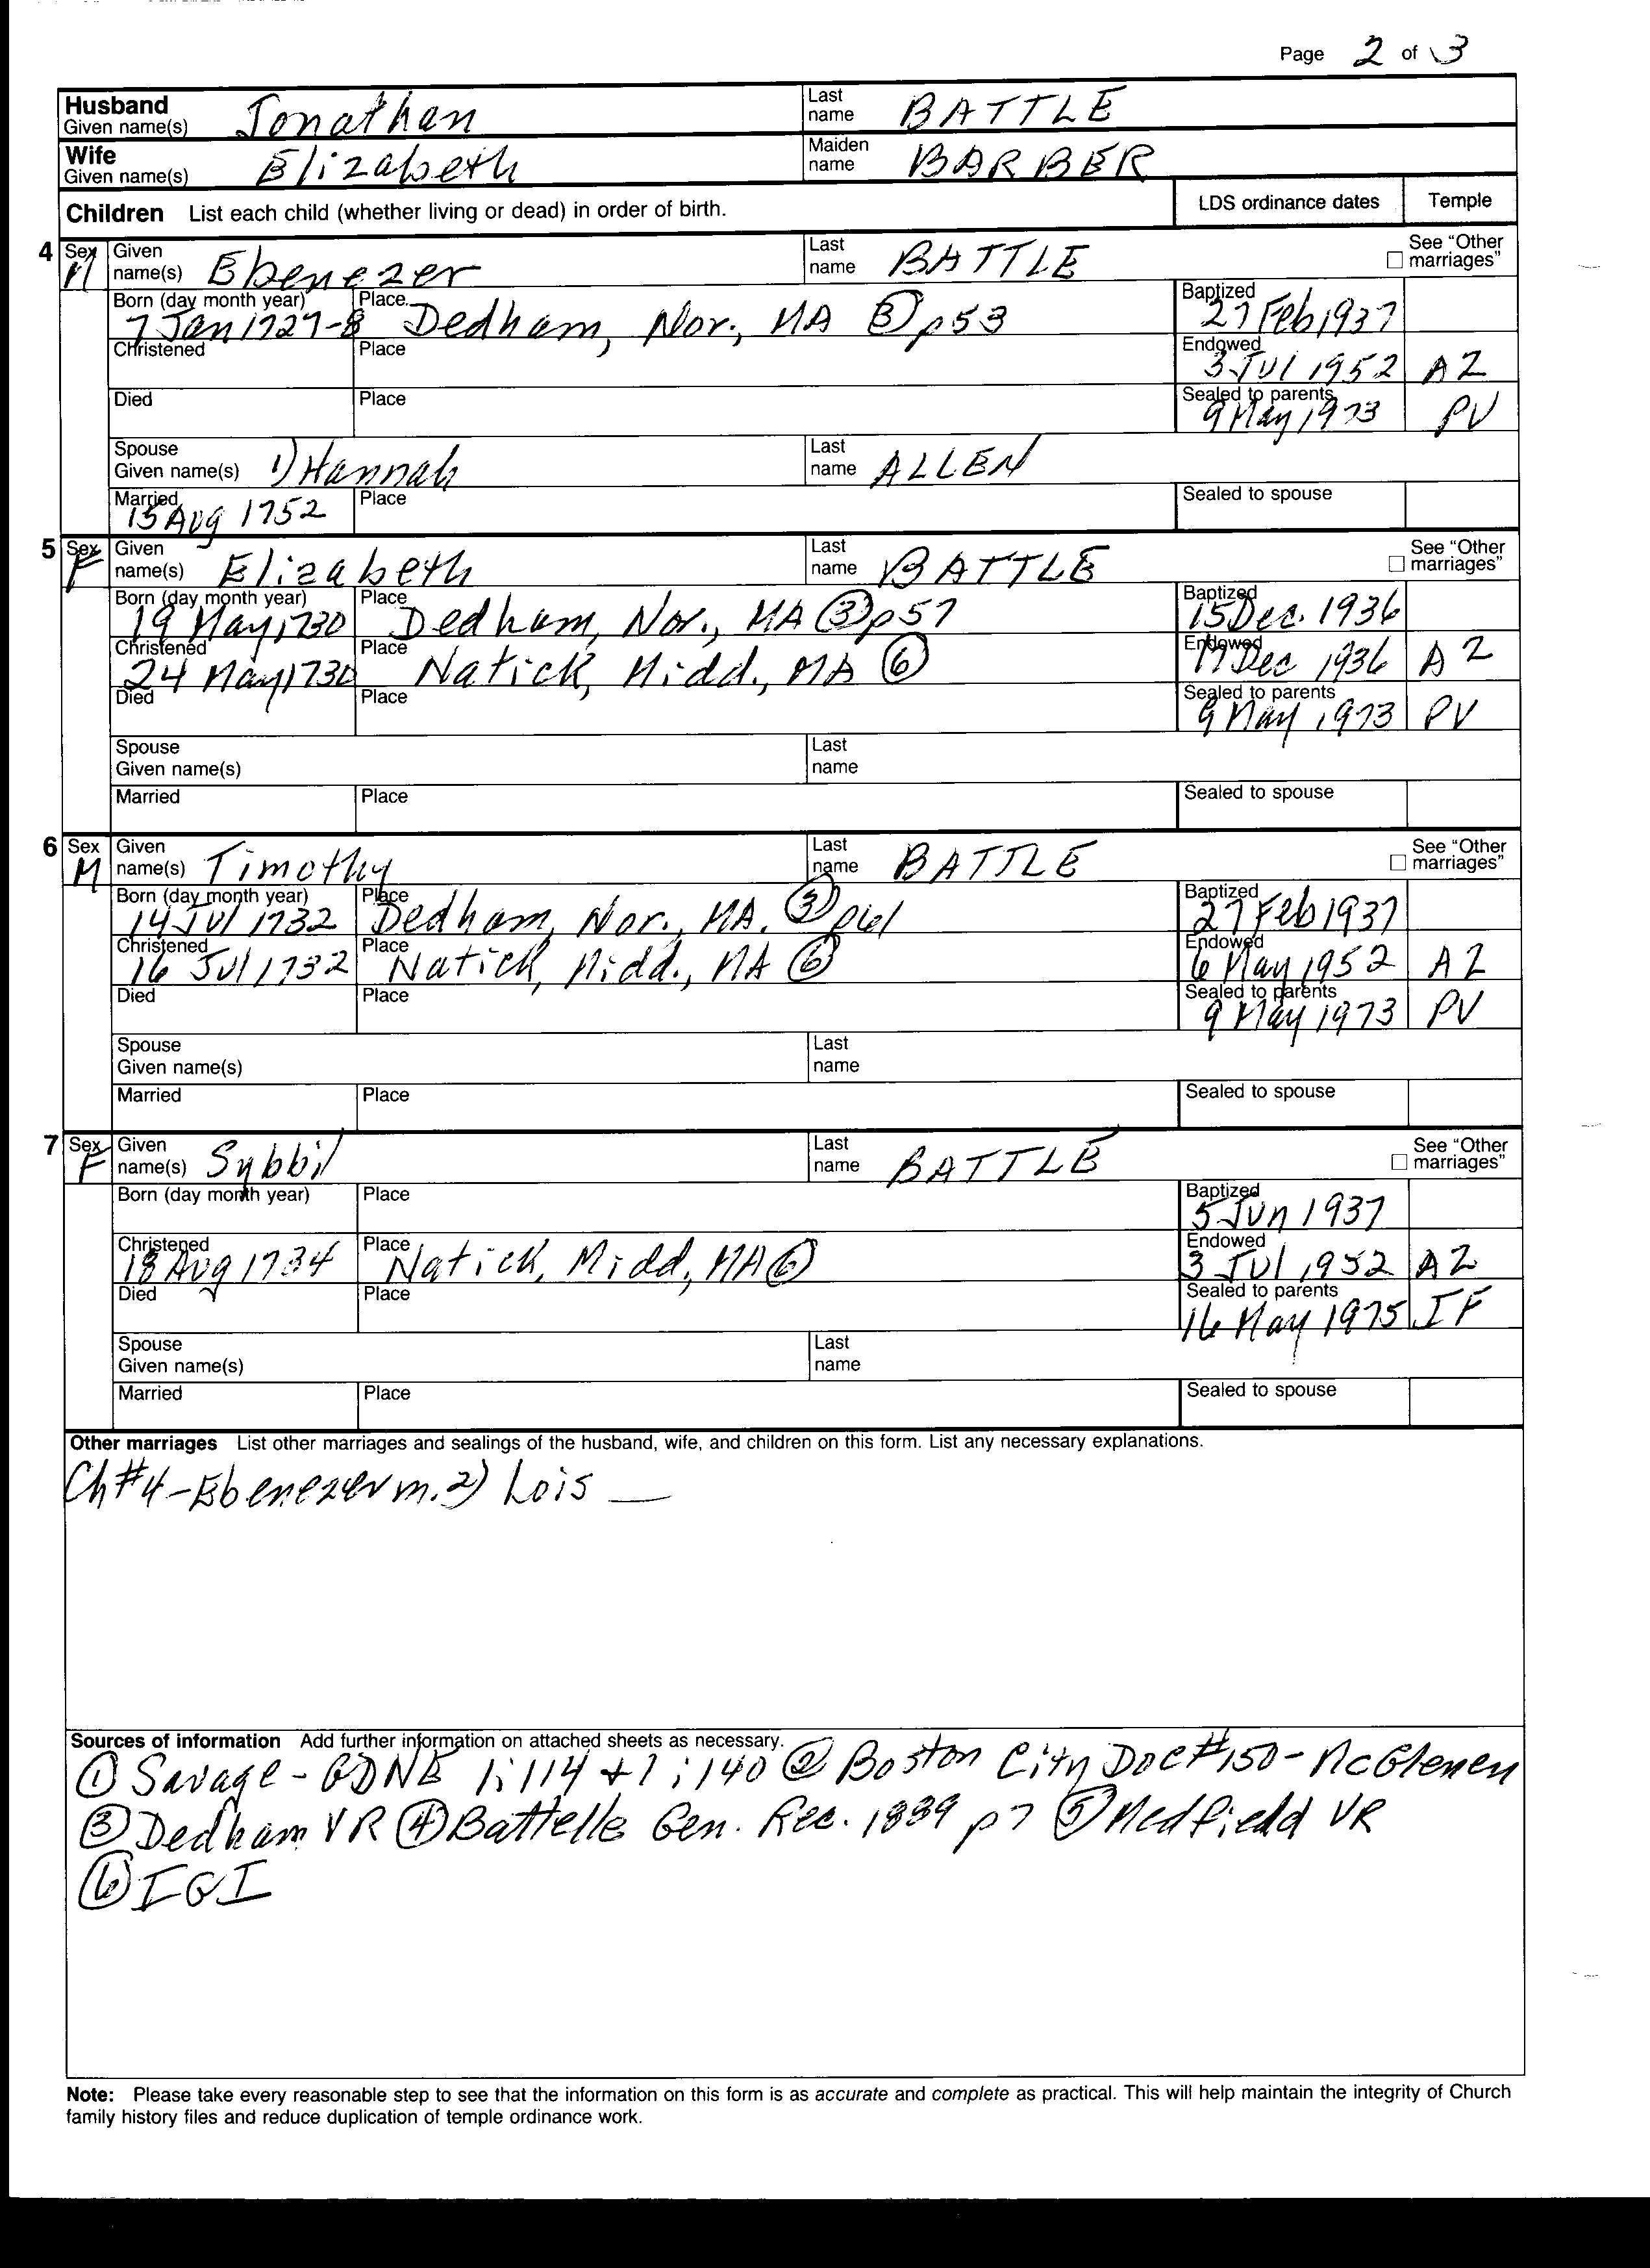 Page 2 of 3
Husband Given name(s) Jonathan Last name BATTLE
Wife Given name(s) Elizabeth Maiden name BARBER
Children List each child (whether living or dead) in order of birth. LDS ordinance dates Temple
4 Sex M Given name(s) Ebenezer Last name BATTLE See "Other marriages"
Born (day month year) 7 Jan 1727-8 Place Dedham, Nor., MA ③ p53 Baptized 27 Feb 1937
Christened Place Endowed 3 Jul 1952 AZ
Died Place Sealed to parents 9 May 1973 PV
Spouse Given name(s) 1) Hannah Last name ALLEN
Married 15 Aug 1752 Place Sealed to spouse
5 Sex F Given name(s) Elizabeth Last name BATTLE See "Other marriages"
Born (day month year) 19 May 1730 Place Dedham, Nor., MA ③ p57 Baptized 15 Dec. 1936
Christened 24 May 1730 Place Natick, Midd., MA ⑥ Endowed 17 Dec 1936 AZ
Died Place Sealed to parents 9 May 1973 PV
Spouse Given name(s) Last name
Married Place Sealed to spouse
6 Sex M Given name(s) Timothy Last name BATTLE See "Other marriages"
Born (day month year) 14 Jul 1732 Place Dedham, Nor., MA. ③ p61 Baptized 27 Feb 1937
Christened 16 Jul 1732 Place Natick, Midd., MA ⑥ Endowed 6 May 1952 AZ
Died Place Sealed to parents 9 May 1973 PV
Spouse Given name(s) Last name
Married Place Sealed to spouse
7 Sex F Given name(s) Sybbil Last name BATTLE See "Other marriages"
Born (day month year) Place Baptized 5 Jun 1937
Christened 18 Aug 1734 Place Natick, Midd, MA ⑥ Endowed 3 Jul 1952 AZ
Died Place Sealed to parents 16 May 1975 IF
Spouse Given name(s) Last name
Married Place Sealed to spouse
Other marriages List other marriages and sealings of the husband, wife, and children on this form. List any necessary explanations.
Ch#4-Ebenezer m. 2) Lois —
Sources of information Add further information on attached sheets as necessary.
① Savage - GDNE 1:114 + 1:140 ② Boston City Doc#150 - McGlenen
③ Dedham VR ④ Battelle Gen. Rec. 1889 p7 ⑤ Medfield VR
⑥ IGI
Note: Please take every reasonable step to see that the information on this form is as accurate and complete as practical. This will help maintain the integrity of Church
family history files and reduce duplication of temple ordinance work.